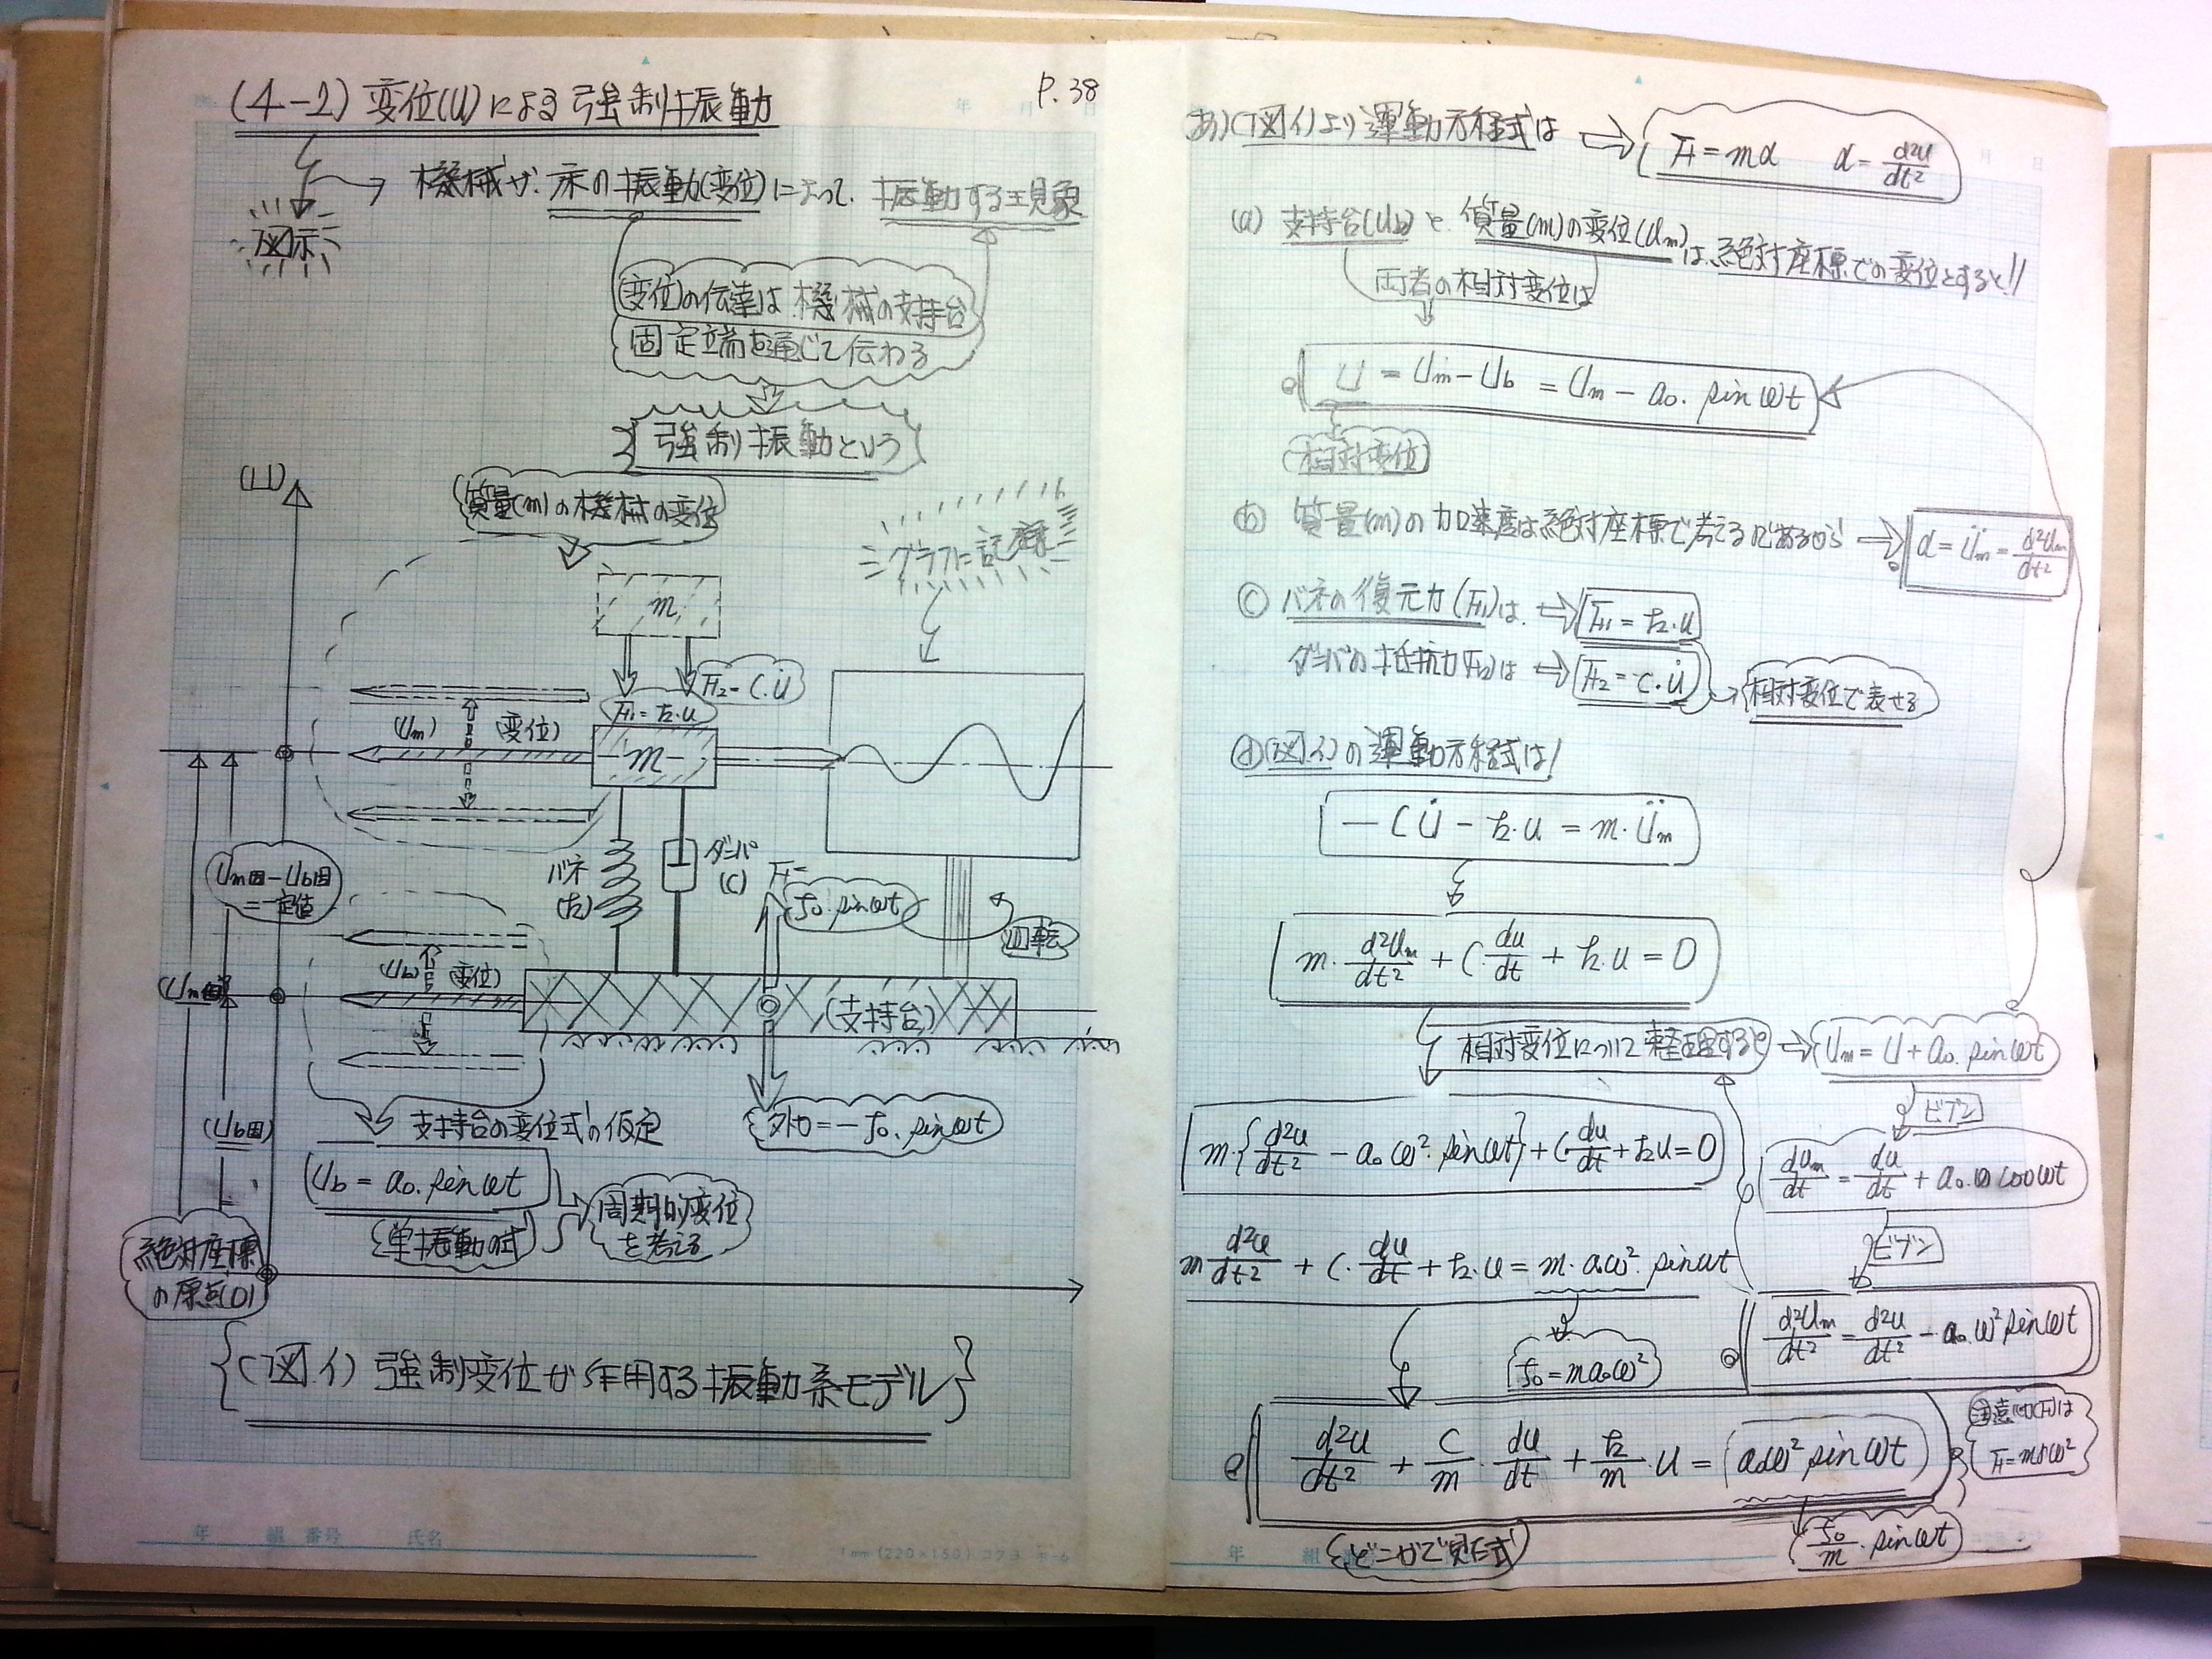 (4-2) 変位(U)による強制振動
P.38
機械が、床の振動(変位)によって、振動する現象
図示
(変位)の伝達は機械の支持台
固定端を通じて伝わる
強制振動という
(U)
質量(m)の機械の変位
グラフに記録
m
F2=C・u̇
F1=k・u
(Um) (変位)
m
Um固-Ub固
=一定値
バネ
(k)
ダンパ
(C)
F=
f0・sinωt
回転
(Um固)
(Ub) (変位)
(支持台)
(Ub固)
支持台の変位式の仮定
外力=-f0・sinωt
Ub=a0・sinωt
(単振動の式)
周期的変位
を考える
絶対座標
の原点(0)
(図イ) 強制変位が作用する振動系モデル
年 組 番号 氏名
あ)(図イ)より運動方程式は
F=mα α=d²u/dt²
ⓐ 支持台(Ub)と、質量(m)の変位(Um)は絶対座標での変位とすると!!
両者の相対変位は
U=Um-Ub=Um-a0・sinωt
(相対変位)
ⓑ 質量(m)の加速度は絶対座標で考えるのであるから
α=Üm=d²Um/dt²
ⓒ バネの復元力(F1)は、 F1=k・u
ダンパの抵抗力(F2)は F2=C・u̇
相対変位で表せる
ⓓ(図イ)の運動方程式は!
-Cu̇-k・u=m・Üm
m・d²Um/dt²+C・du/dt+k・u=0
相対変位について整理すると
Um=U+a0・sinωt
ビブン
m・{d²u/dt²-a0ω²・sinωt}+C・du/dt+ku=0
dUm/dt=du/dt+a0・ωcosωt
ビブン
m d²u/dt²+C・du/dt+k・u=m・a0ω²・sinωt
d²Um/dt²=d²u/dt²-a0・ω²sinωt
f0=ma0ω²
d²u/dt²+C/m・du/dt+k/m・u=(a0ω²sinωt)
F=mrω²
(どこかで見た式)
f0/m・sinωt
年 組